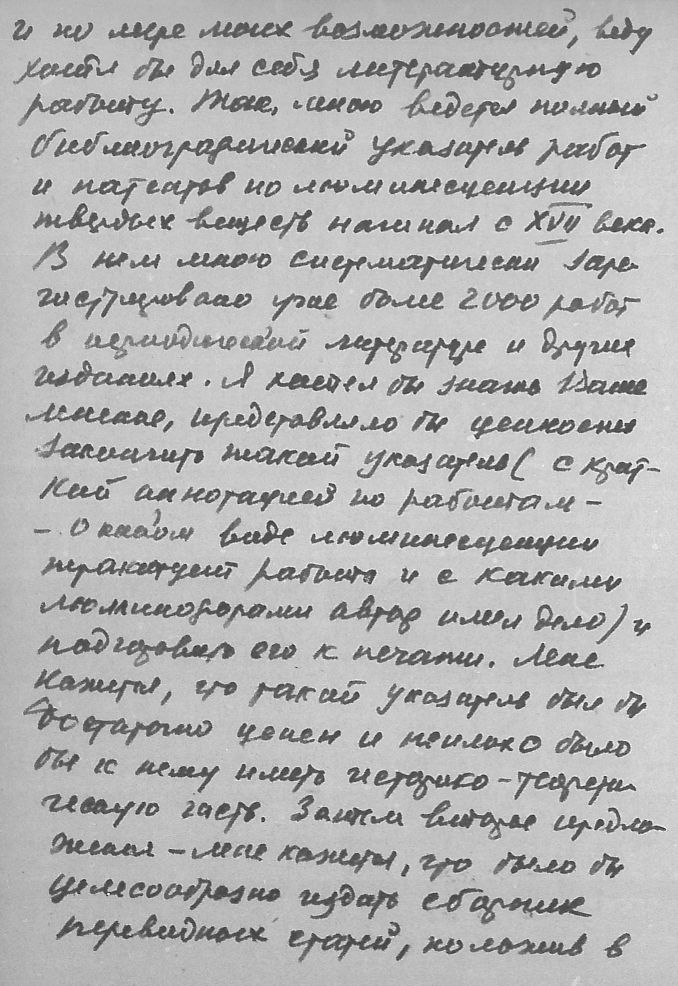 и по мере моих возможностей, веду
хотя бы для себя литературную
работу. Так, мною ведется полный
библиографический указатель работ
и патентов по люминесценции
твердых веществ начиная с XVII века.
В нем мною систематически заре-
гистрировано уже более 2000 работ
в периодической литературе и других
изданиях. Я хотел бы знать Ваше
мнение, представляло бы ценность
закончить такой указатель (с крат-
кой аннотацией по работам –
– о каком виде люминесценции
трактует работа и с какими
люминофорами автор имел дело) и
подготовить его к печати. Мне
кажется, что такой указатель был бы
достаточно ценен и неплохо было
бы к нему иметь историко-теорети-
ческую часть. Затем второе предло-
жение – мне кажется, что было бы
целесообразно издать сборник
переводных статей, положив в